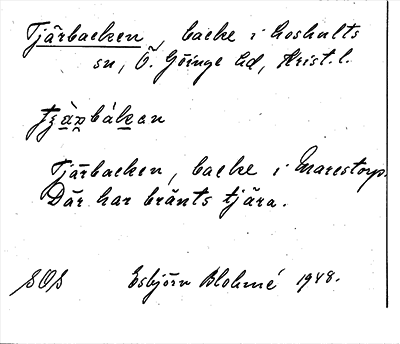 Tjärbacken, backe i Loshults
sn, Ö. Göinge hd, Krist. l.
Tjärbacken, backe i Marestorp.
Där har bränts tjära.
SOS Esbjörn Blohmé 1948.